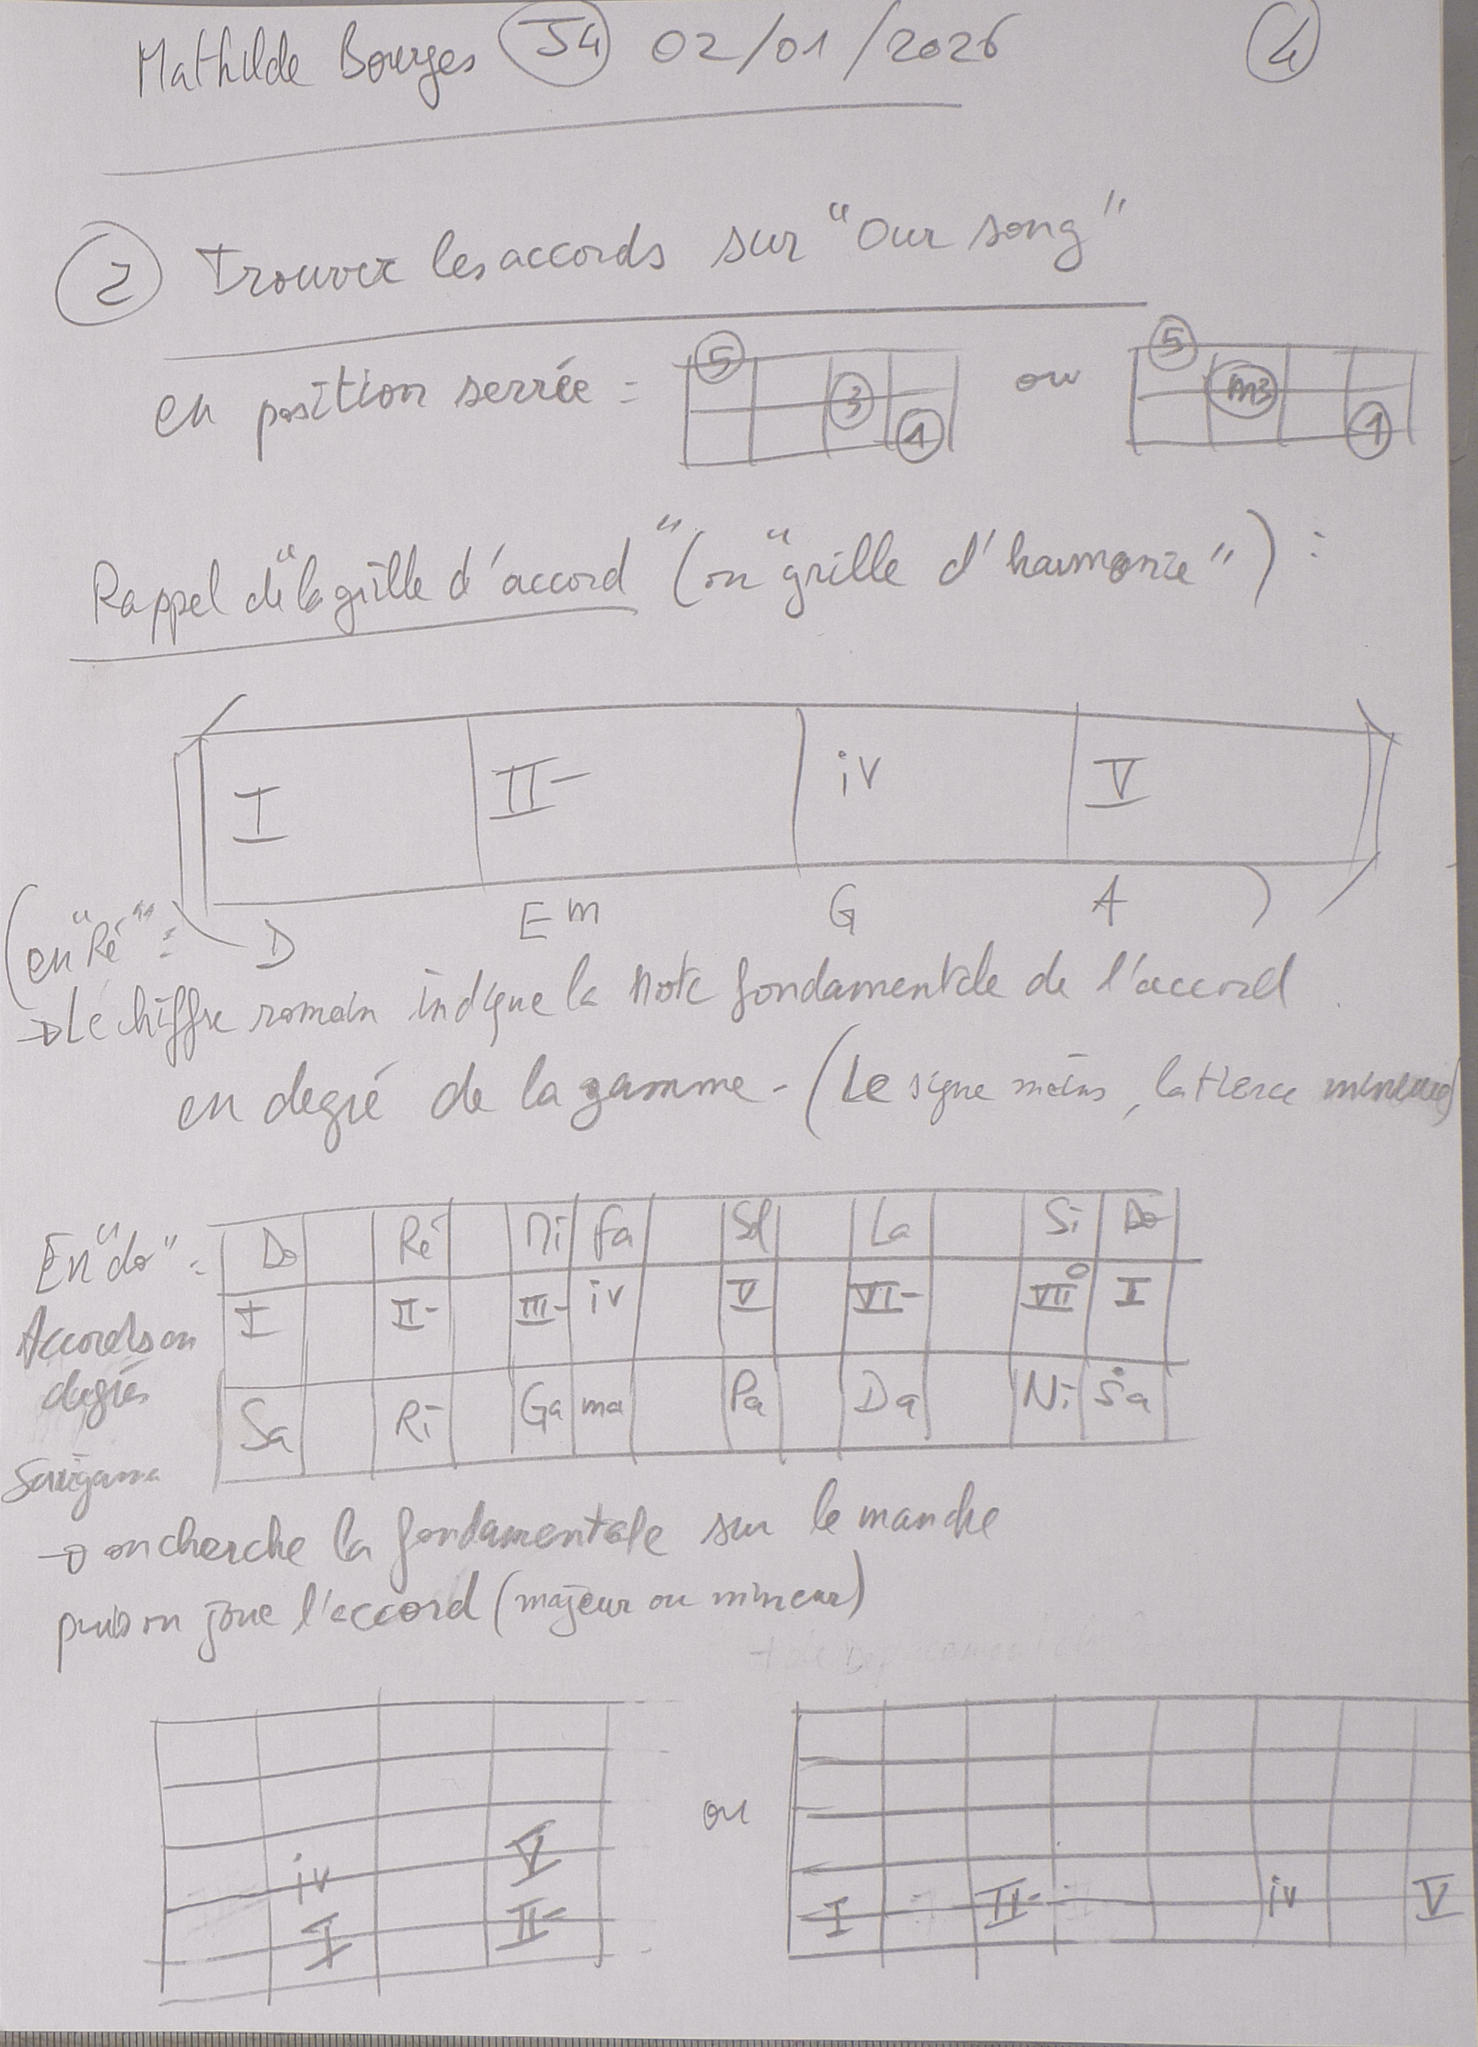 Mathilde Bourges J4 02/01/2026 4
2 Trouver les accords sur "Our song"
en position serrée : 5 3 1 ou 5 m3 1
Rappel de "la grille d'accord" (ou "grille d'harmonie") :
I II- iv V
(en "Ré" : D Em G A )
→ Le chiffre romain indique la note fondamentale de l'accord
en degré de la gamme - (Le signe moins, la tierce mineure)
En "do" : Do Ré Mi fa Sol La Si Do
Accords en degrés I II- III- iv V VI- VII° I
Sarigama Sa Ri Ga ma Pa Da Ni Ṡa
→ on cherche la fondamentale sur le manche
puis on joue l'accord (majeur ou mineur)
iv V
I II-
ou
I II- iv V